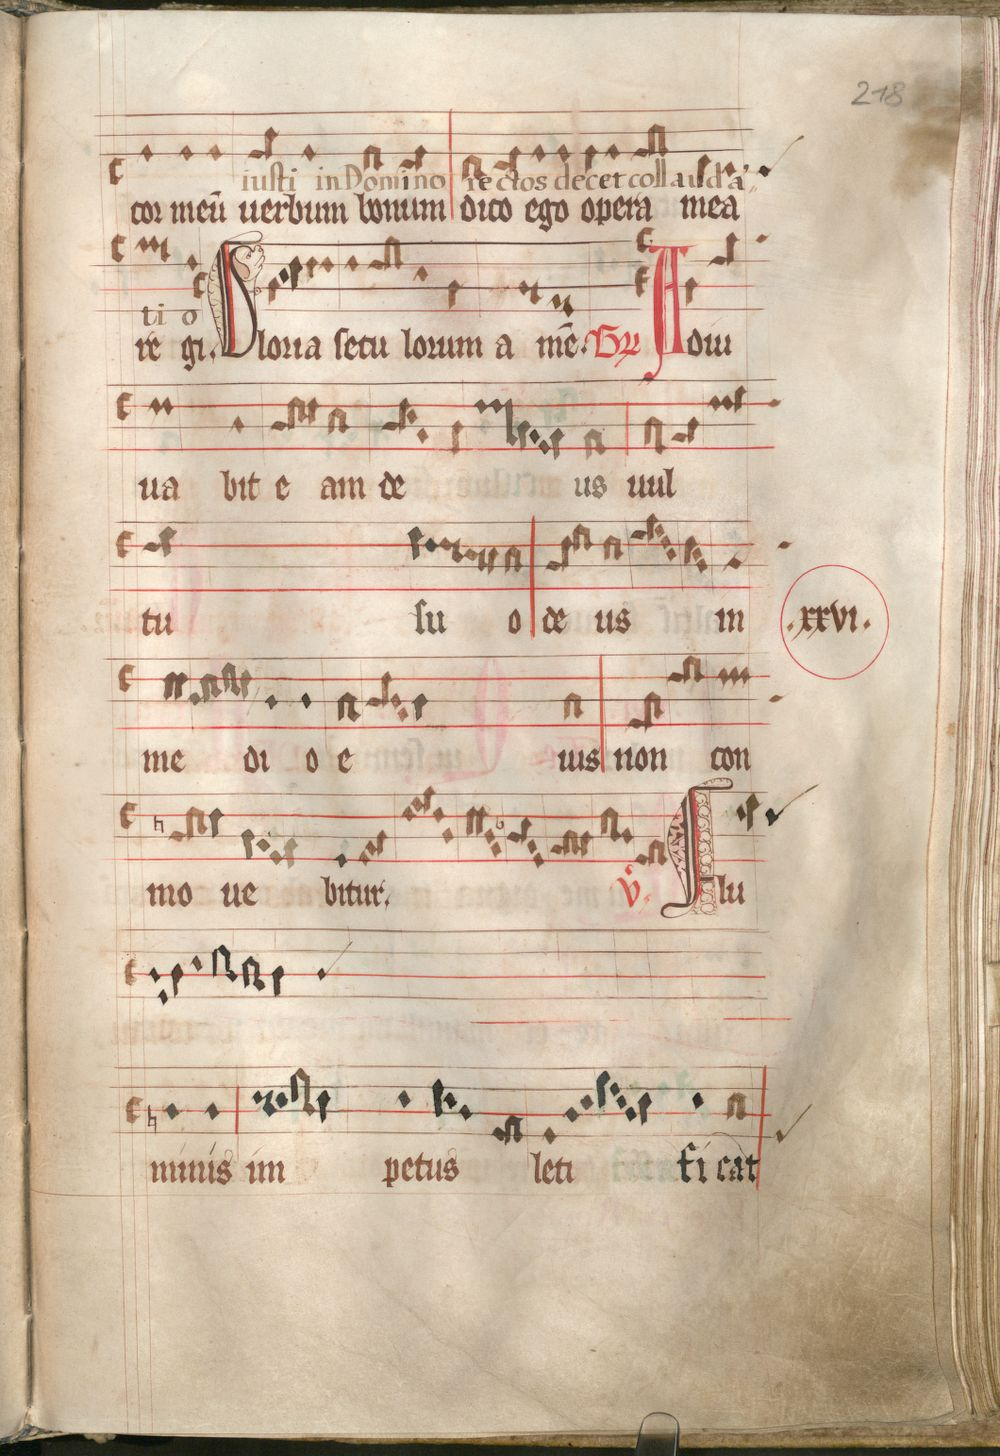 218
iusti in Domino rectos decet collauda
cor meū uerbum bonum dico ego opera mea
ti o
re gi. Gloria secu lorum a mē. Gr̄ Adiu
ua bit e am de us uul
tu su o de us in
.xxvi.
me di o e ius non con
mo ue bitur. v̄. Flu
minis im petus leti fi cat